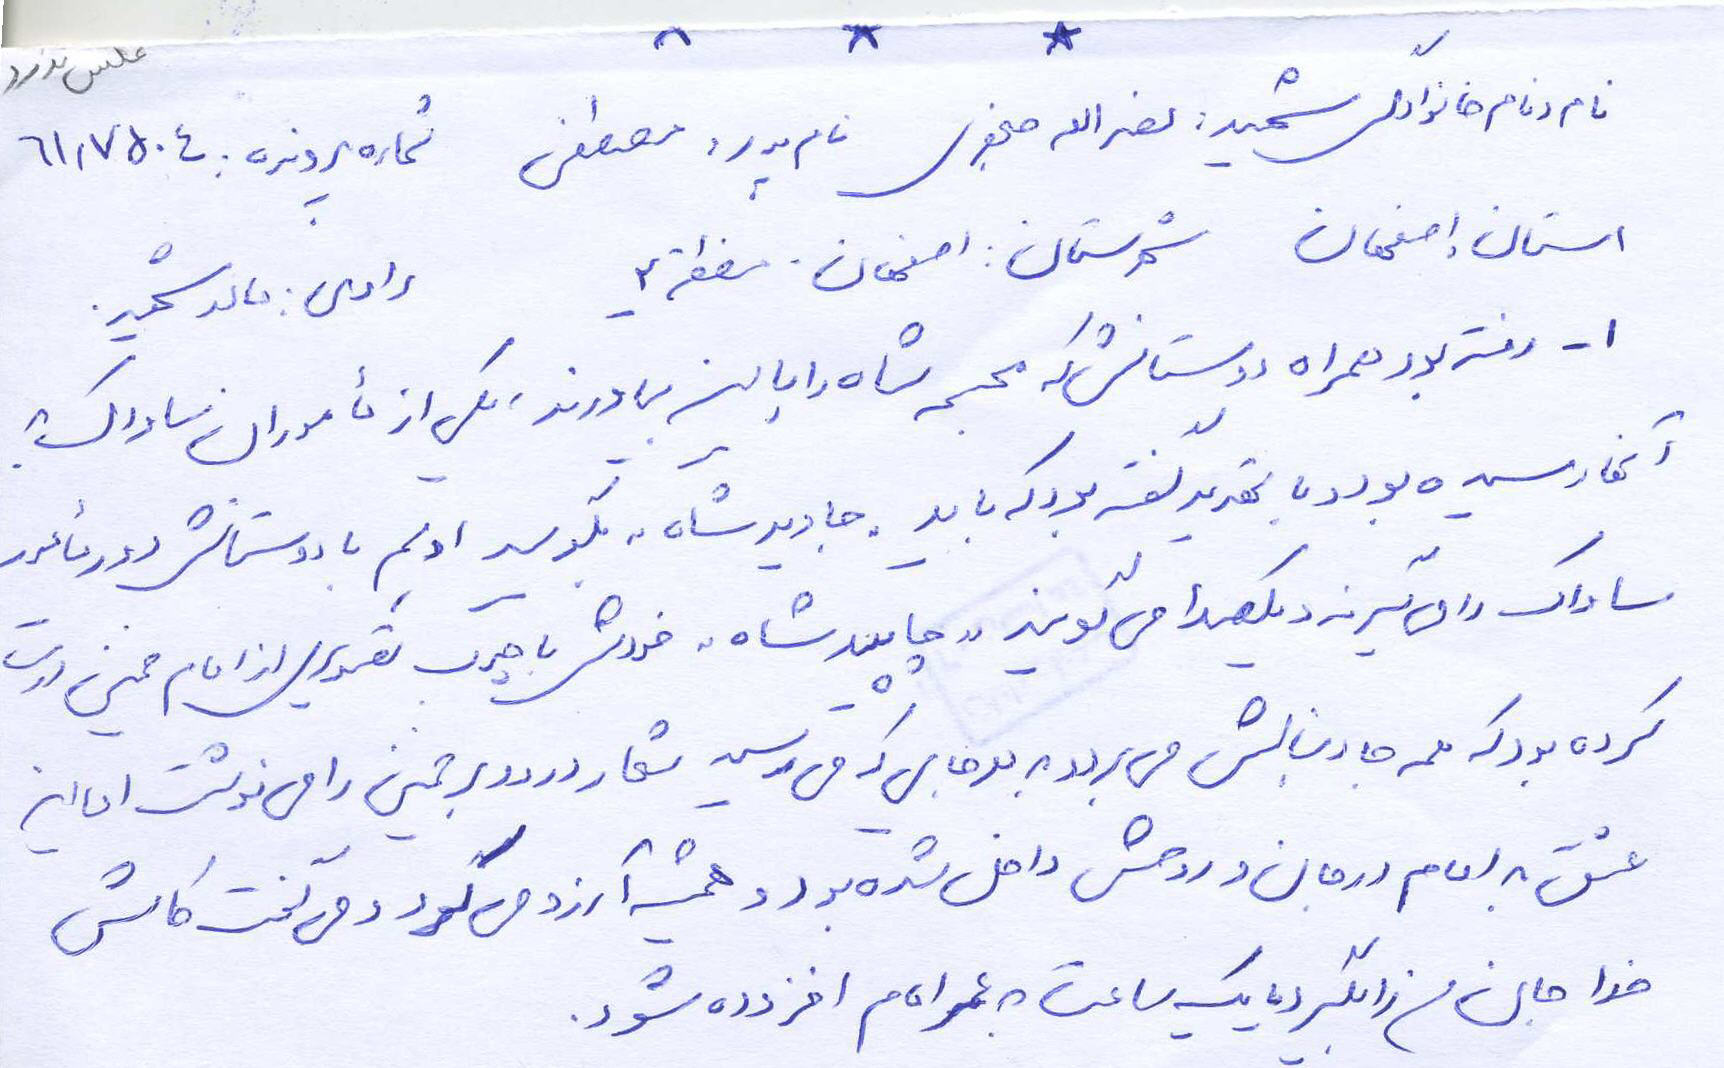 عکس ندارد
نام و نام خانوادگی شهید: نصراله صفوی نام پدر: مصطفی شماره پرونده: ٦١١٧٥٠٤
استان: اصفهان شهرستان: اصفهان - منطقه ٢ راوی: مادر شهید.
١- رفته بود همراه دوستانش که مجسمه شاه را پایین بیاورند، یکی از مأموران ساواک به
آنها رسیده بود و با تهدید گفته بود که باید "جاوید شاه" بگوئید او هم با دوستانش دور مأمور
ساواک را می گیرند و یکصدا می گویند "چاپید شاه" خودش با چوب تصویری از امام خمینی درست
کرده بود که همه جا دنبالش می برد و به هر جایی که می رسید شعار درود بر خمینی را می نوشت اما این
عشق به امام در جان و روحش داخل شده بود و همیشه آرزو می کرد و می گفت کاش
خدا جان من را بگیرد و یا یک ساعت به عمر امام افزوده شود.